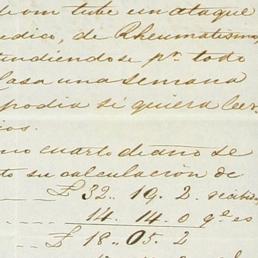 tube un ataque
medico, de Rheumatismo,
tendiendose pr. todo
Casa una semana
podia si quiera leer,
cuarto diano de
to su calculación de
£ 32 .. 19. 2. recibi
14. 14. 0 qe. es
£ 18 .. 05. 2